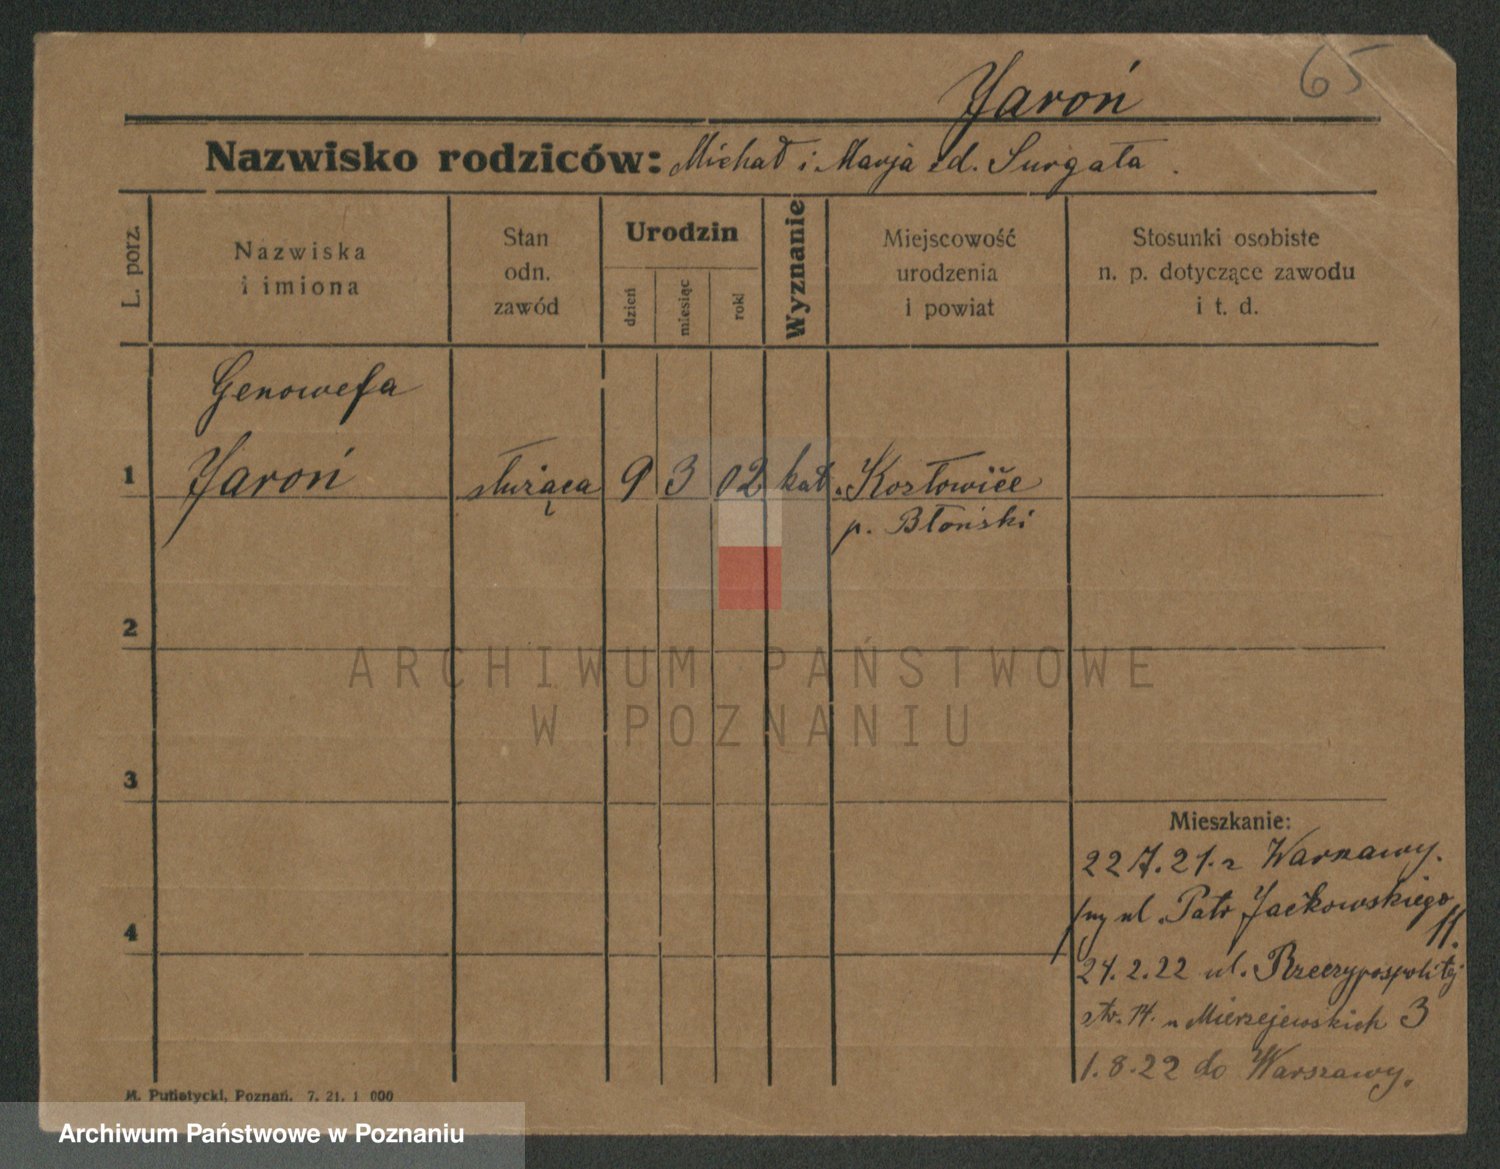 65
Jaroń
Nazwisko rodziców: Michał i Marja zd. Surgała.
L. porz.
Nazwiska
i imiona
Stan
odn.
zawód
Urodzin
dzień
miesiąc
rok
Wyznanie
Miejscowość
urodzenia
i powiat
Stosunki osobiste
n. p. dotyczące zawodu
i t. d.
Genowefa
1 Jaroń służąca 9 3 02 kat. Kozłowice
p. Błoński
2
ARCHIWUM PAŃSTWOWE
W POZNANIU
3
Mieszkanie:
22.7.21. z Warszawy.
ul. Patr Jackowskiego
11.
4
24.2.22 ul. Rzeczypospolitej
str. 14. u Mierzejewskich 3
1.8.22 do Warszawy.
M. Putiatycki, Poznań. 7. 21. 1 000
Archiwum Państwowe w Poznaniu